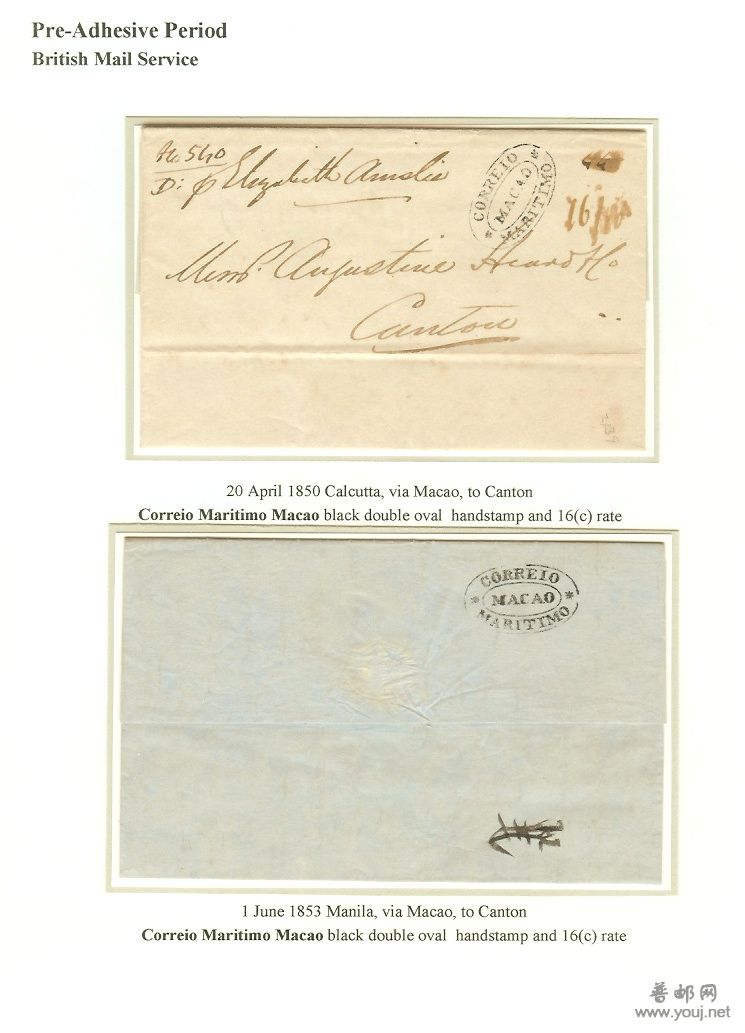 Pre-Adhesive Period
British Mail Service
No 540
D: p Elizabeth Ainslie
CORREIO
MACAO
MARITIMO
16
Messrs. Augustine Heard & Co
Canton
20 April 1850 Calcutta, via Macao, to Canton
Correio Maritimo Macao black double oval handstamp and 16(c) rate
CORREIO
MACAO
MARITIMO
1 June 1853 Manila, via Macao, to Canton
Correio Maritimo Macao black double oval handstamp and 16(c) rate
普邮网
www.youj.net